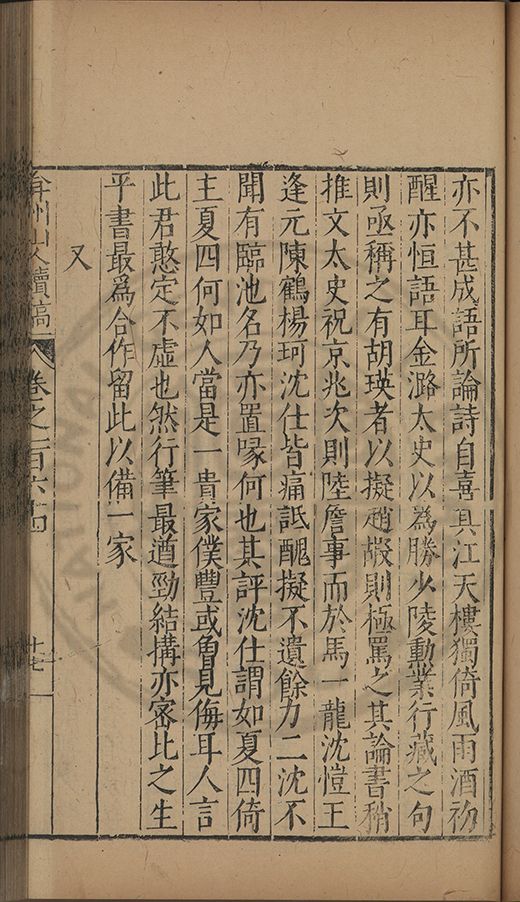 亦不甚成語所論詩自喜其江天樓獨倚風雨酒初
醒亦恒語耳金潞太史以為勝少陵勳業行藏之句
則亟稱之有胡瑛者以擬趙嘏則極罵之其論書稍
推文太史祝京兆次則陸詹事而於馬一龍沈愷王
逢元陳鶴楊珂沈仕皆痛詆醜擬不遺餘力二沈不
聞有臨池名乃亦置喙何也其評沈仕謂如夏四倚
主夏四何如人當是一貴家僕豐或曾見侮耳人言
此君憨定不虛也然行筆最遒勁結搆亦密比之生
平書最爲合作留此以備一家
又
弇州山人續稿
卷之一百六十四
十七